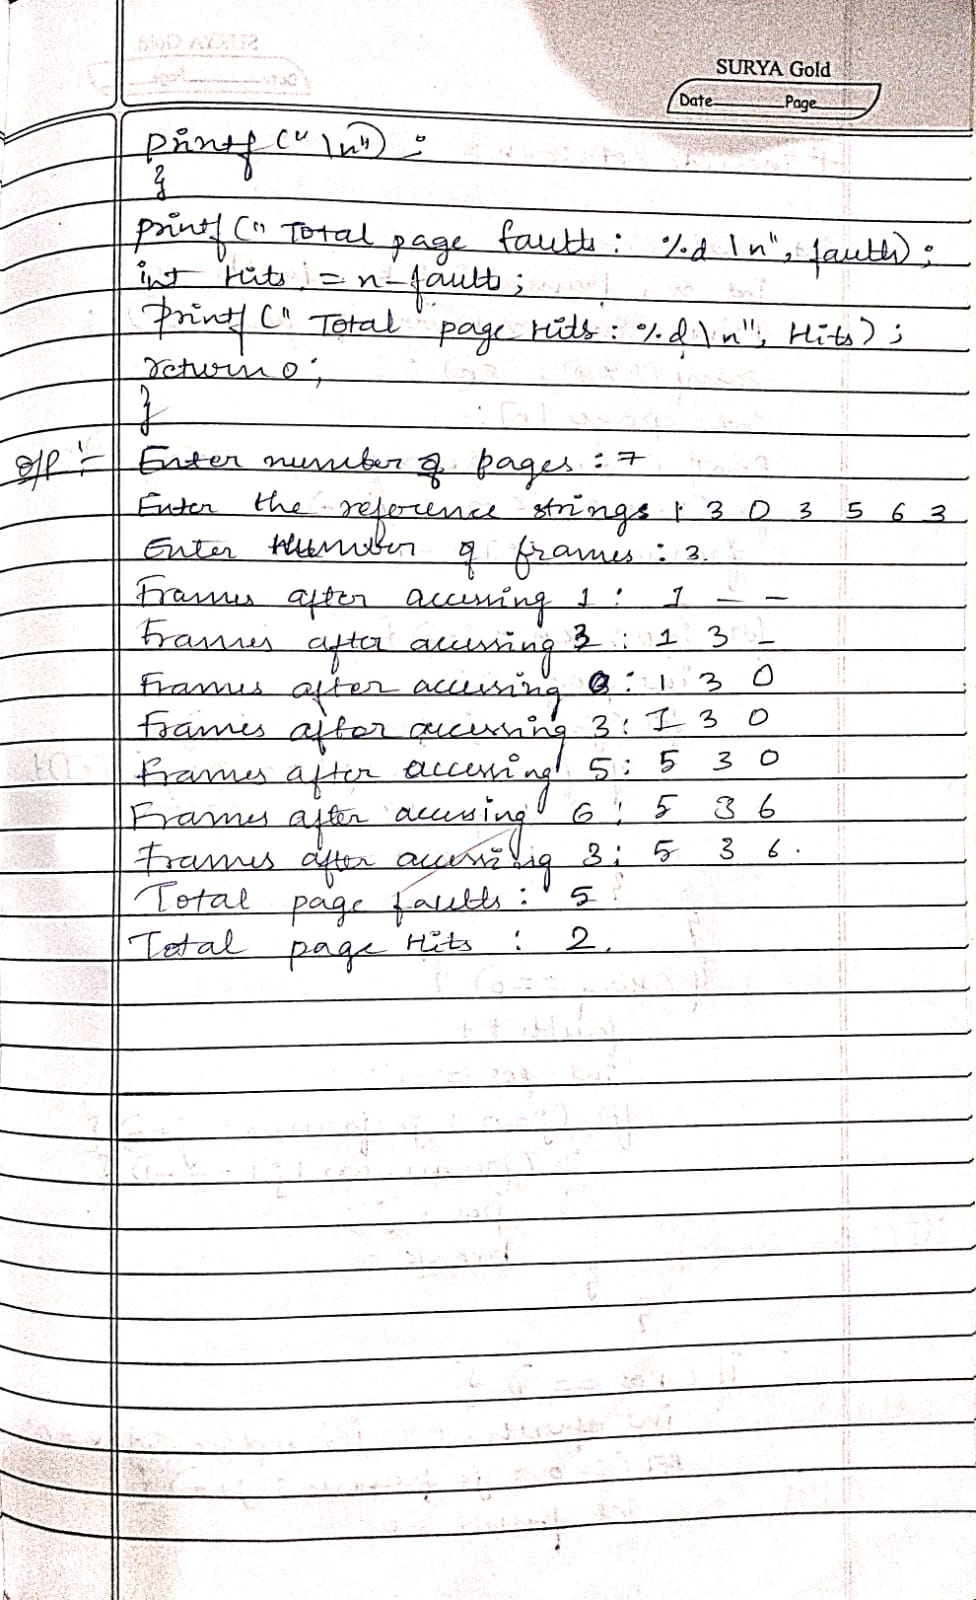 SURYA Gold
Date Page
printf ("\n") ;
}
printf (" Total page faults : %d \n", faults) ;
int Hits = n-faults ;
printf (" Total page Hits : %d \n", Hits) ;
return 0 ;
}
O/P :- Enter number of pages : 7
Enter the reference strings 1 3 0 3 5 6 3
Enter Number of frames : 3.
Frames after accessing 1 : 1 - -
Frames after accessing 3 : 1 3 -
Frames after accessing 0 : 1 3 0
Frames after accessing 3 : 1 3 0
Frames after accessing 5 : 5 3 0
Frames after accessing 6 : 5 3 6
Frames after accessing 3 : 5 3 6 .
Total page faults : 5
Total page Hits : 2.